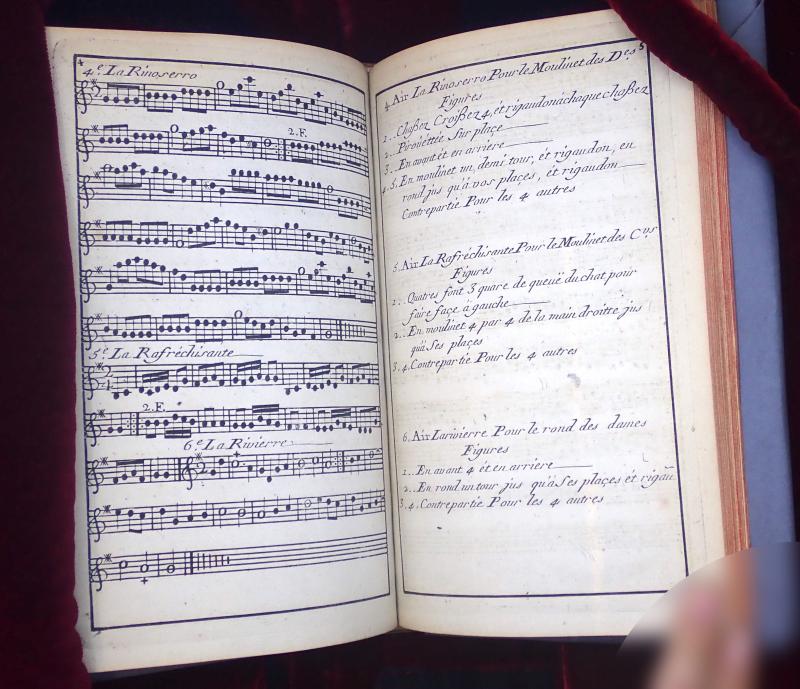 4
4.e La Rinoserro
2.F.
5.e La Rafréchisante
2.F.
6.e La Rivierre
5
4. Air La Rinoserro Pour le Moulinet des D.es
Figures
1.. Chaßez Croißez 4, et rigaudon à chaque chaßez
2.. Pirouettée Sur plaçe
3.. En avant et en arriere
4.5. En moulinet un, demi tour, ét rigaudon, en
rond jus qu'à vos plaçes, ét rigaudon
Contrepartie Pour les 4 autres
5. Air La Rafréchisante Pour le Moulinet des C.rs
Figures
1.. Quatres font 3 quare de queuë du chat pour
faire façe à gauche
2.. En moulinet 4 par 4 de la main droitte jus
qu'à Ses plaçes
3.4. Contrepartie Pour les 4 autres
6. Air Larivierre Pour le rond des dames
Figures
1.. En avant 4 ét en arriere
2.. En rond un tour jus qu'à Ses plaçes ét rigau
3.4. Contrepartie Pour les 4 autres